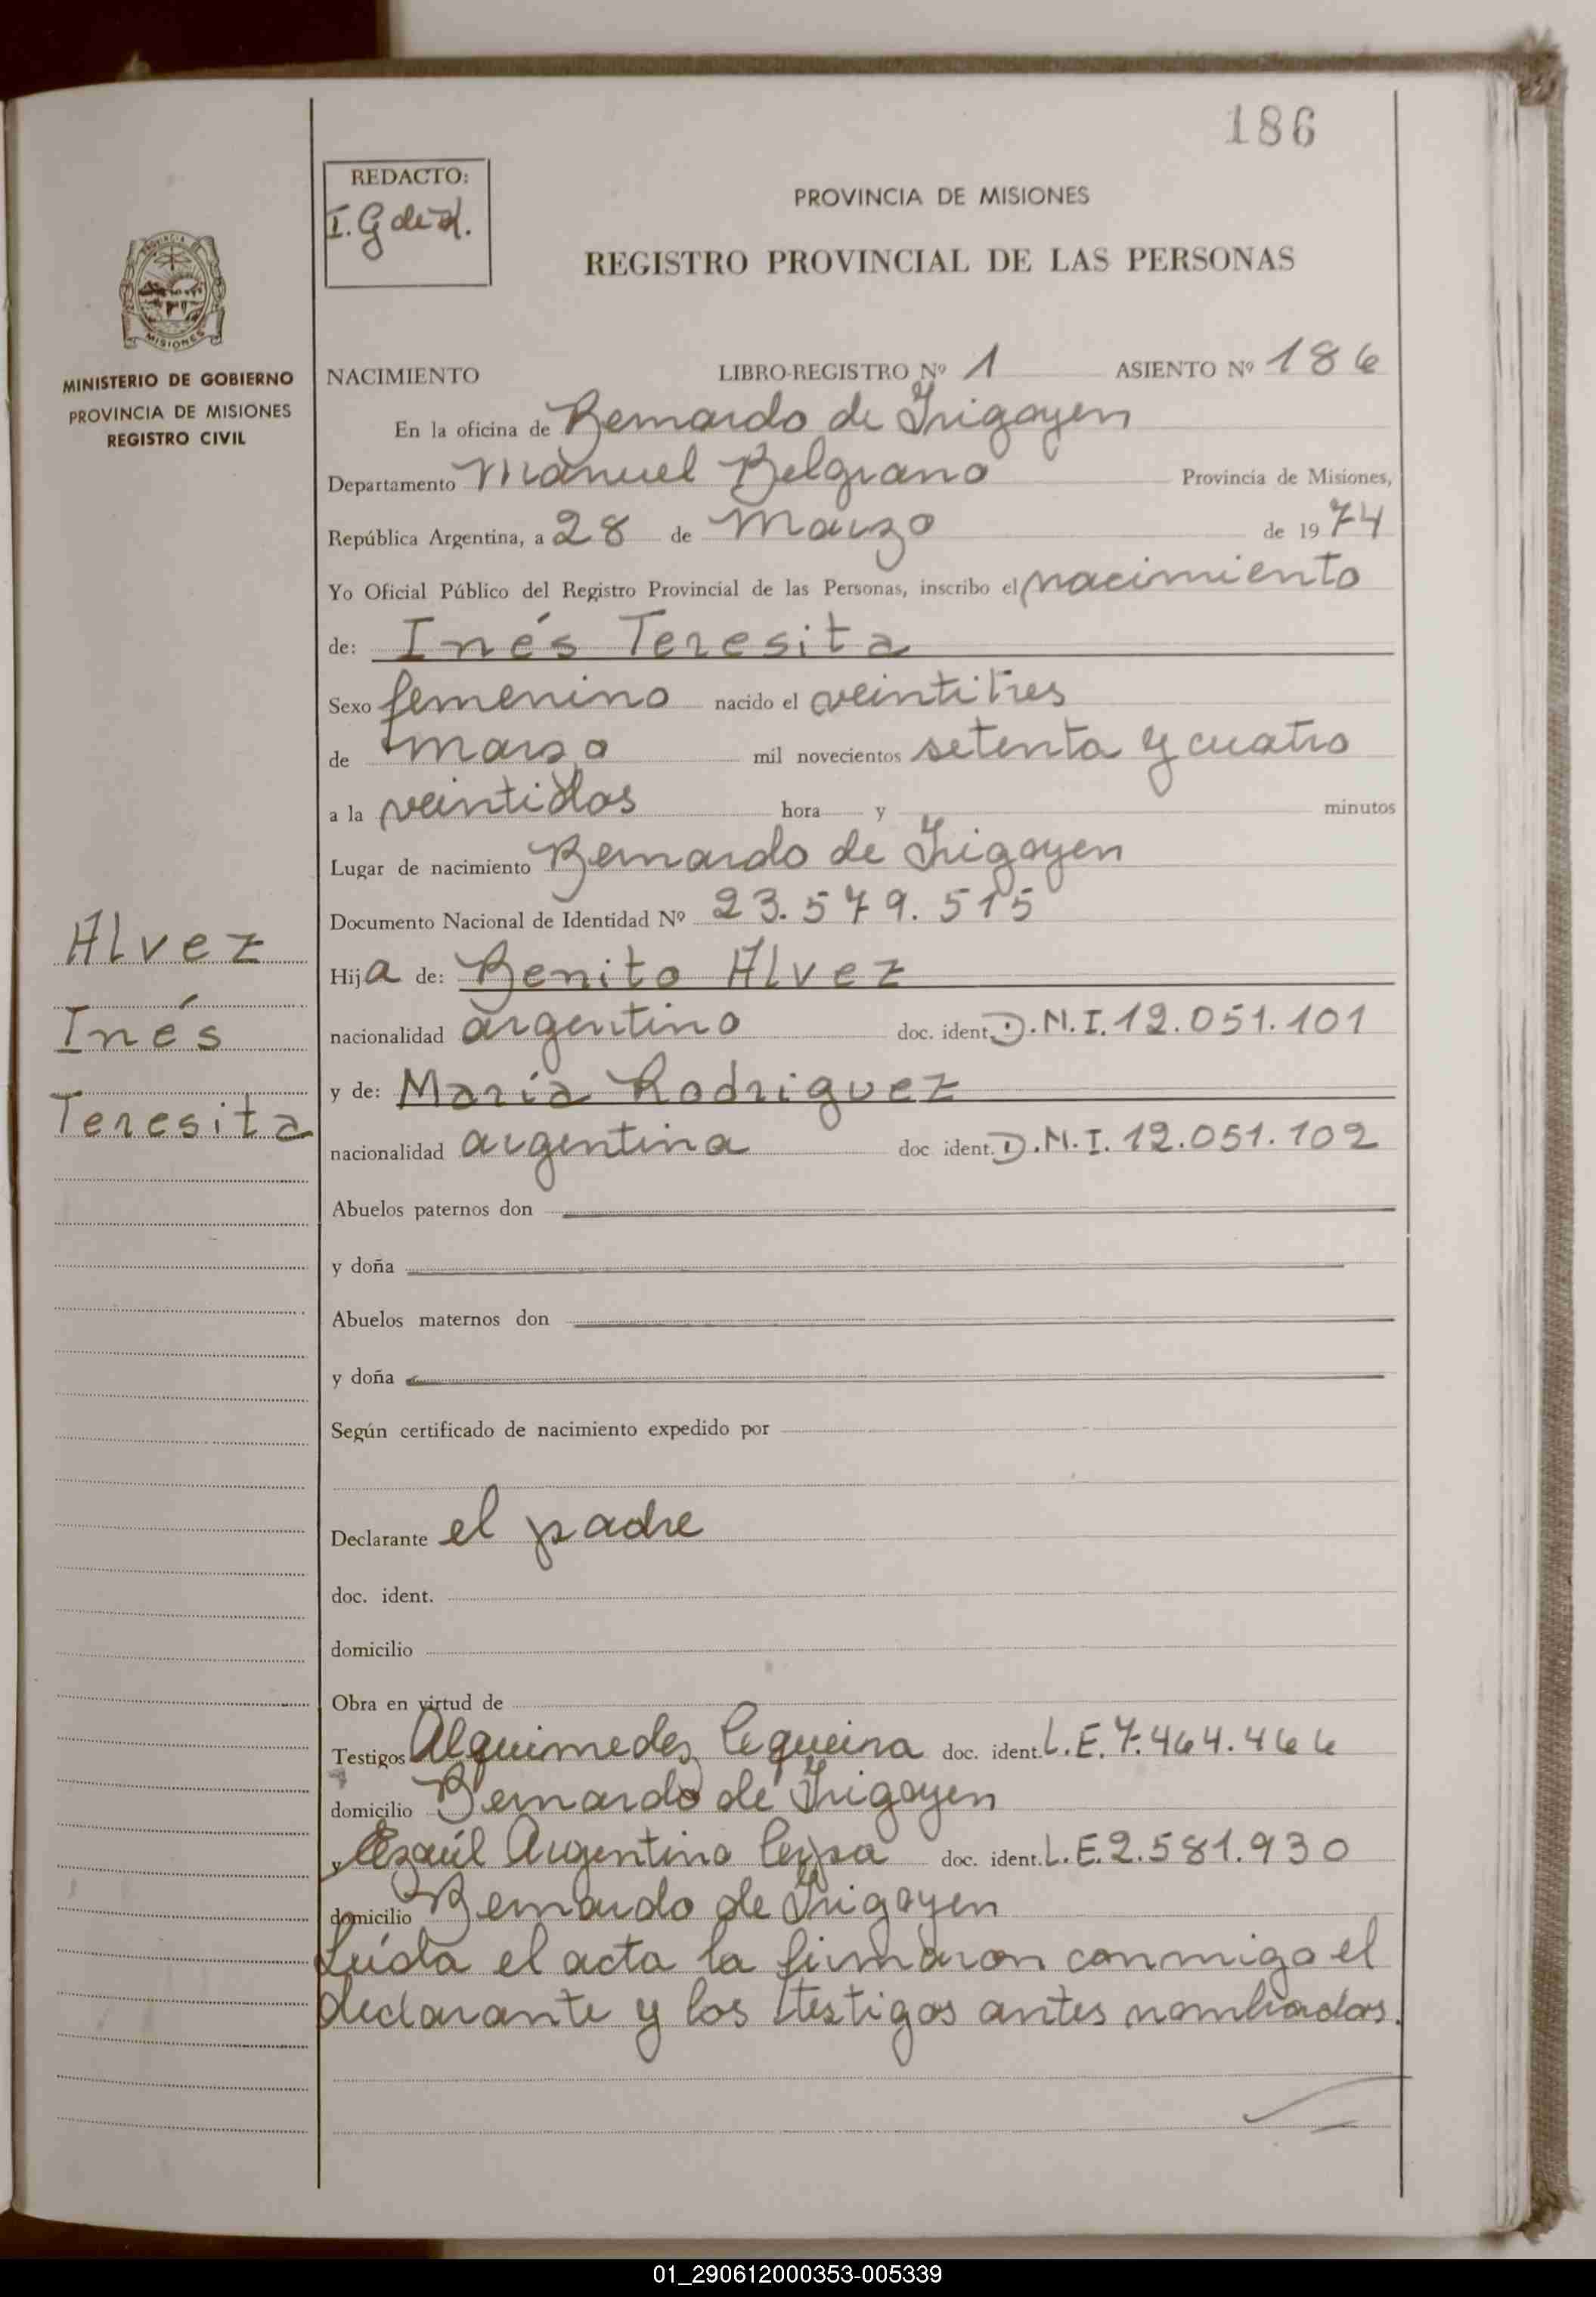 186
REDACTO:
I. G de
PROVINCIA DE MISIONES
REGISTRO PROVINCIAL DE LAS PERSONAS
MISIONES
MINISTERIO DE GOBIERNO
PROVINCIA DE MISIONES
REGISTRO CIVIL
NACIMIENTO LIBRO-REGISTRO Nº 1 ASIENTO Nº 186
En la oficina de Bernardo de Irigoyen
Departamento Manuel Belgrano Provincia de Misiones,
República Argentina, a 28 de Marzo de 1974
Yo Oficial Público del Registro Provincial de las Personas, inscribo el nacimiento
de: Inés Teresita
Sexo femenino nacido el veintitres
de marzo mil novecientos setenta y cuatro
a la veintidos hora y minutos
Lugar de nacimiento Bernardo de Irigoyen
Documento Nacional de Identidad Nº 23.579.515
Alvez
Inés
Teresita
Hija de: Benito Alvez
nacionalidad argentino doc. ident. D.N.I. 12.051.101
y de: María Rodriguez
nacionalidad argentina doc ident. D.N.I. 12.051.102
Abuelos paternos don
y doña
Abuelos maternos don
y doña
Según certificado de nacimiento expedido por
Declarante el padre
doc. ident.
domicilio
Obra en virtud de
Testigos Alquimedes Cequeira doc. ident. L.E. 7.464.466
domicilio Bernardo de Irigoyen
y Ezaúl Argentino doc. ident. L.E. 2.581.930
domicilio Bernardo de Irigoyen
Leída el acta la firmaron conmigo el
declarante y los testigos antes nombrados.
01_290612000353-005339